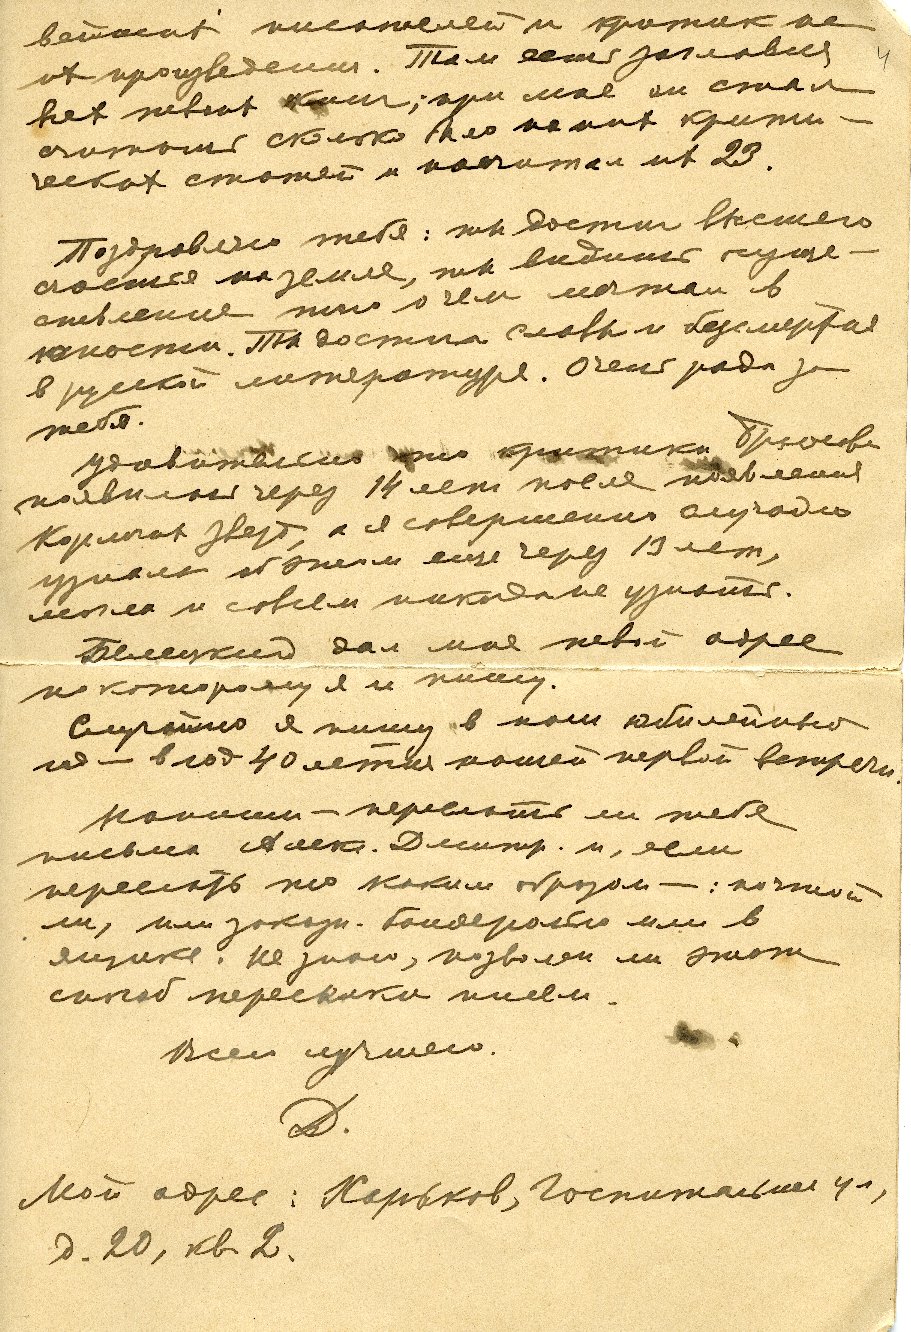 4
писателей и критик на
их произведения. Там есть заглавия
всех твоих книг; при мне он стал
считать сколько было на них крити-
ческих статей и насчитал их 23.
Поздравляю тебя: ты достиг высшего
счастья на земле, ты видишь осуще-
ствление того о чем мечтал в
юности. Ты достиг славы и безсмертия
в русской литературе. Очень рада за
тебя.
Удивительно что критика Брюсова
появилась через 14 лет после появления
Кормчих Звезд, а я совершенно случайно
узнала об этом еще через 13 лет,
могла и совсем никогда не узнать.
Белецкий дал мне твой адрес
по которому я и пишу.
Случайно я пишу в наш юбилейный
год — в год 40 летия нашей первой встречи.
Напиши — переслать ли тебе
письма Алек. Дмитр. и, если
переслать то каким образом — : почтой
ли, или заказн. бандеролью или в
ящике. Не знаю, позволен ли этот
способ пересылки писем.
Всего лучшего.
Д.
Мой адрес: Харьков, Госпитальная ул,
д. 20, кв 2.